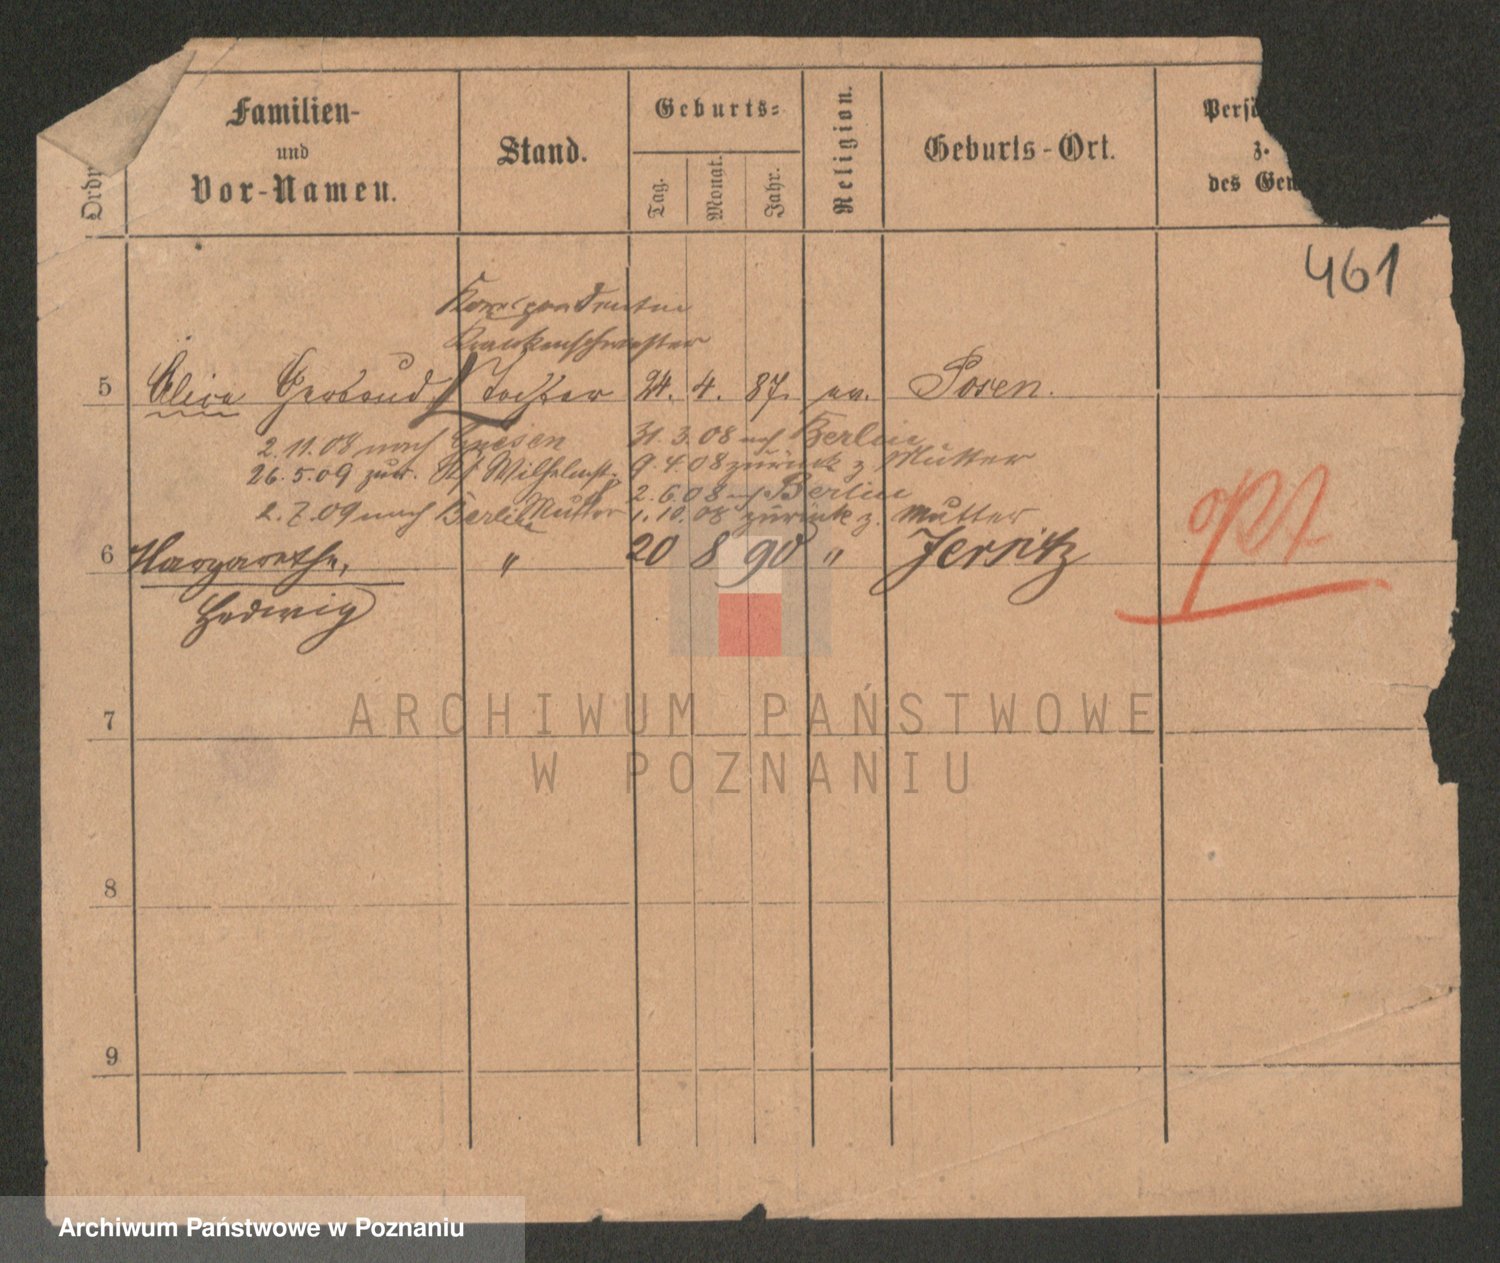 Familien-
und
Vor-Namen.
Stand.
Geburts-
Tag.
Monat.
Jahr.
Religion.
Geburts-Ort.
z.
461
Korrespondentin
Krankenschwester
5 Alice Gertrud Tochter 24. 4. 87. ev. Posen.
2.11.08 nach Gnesen
31.3.08 nach Berlin
26.5.09 zur.
9.4.08 zurück z. Mutter
2.6.08 nach Berlin
2.7.09 nach Berlin Mutter
1.10.08 zurück z. Mutter
6 Margarethe, " 20 8 90 " Jersitz
Hedwig
7
8
9
ARCHIWUM PAŃSTWOWE
W POZNANIU
Archiwum Państwowe w Poznaniu